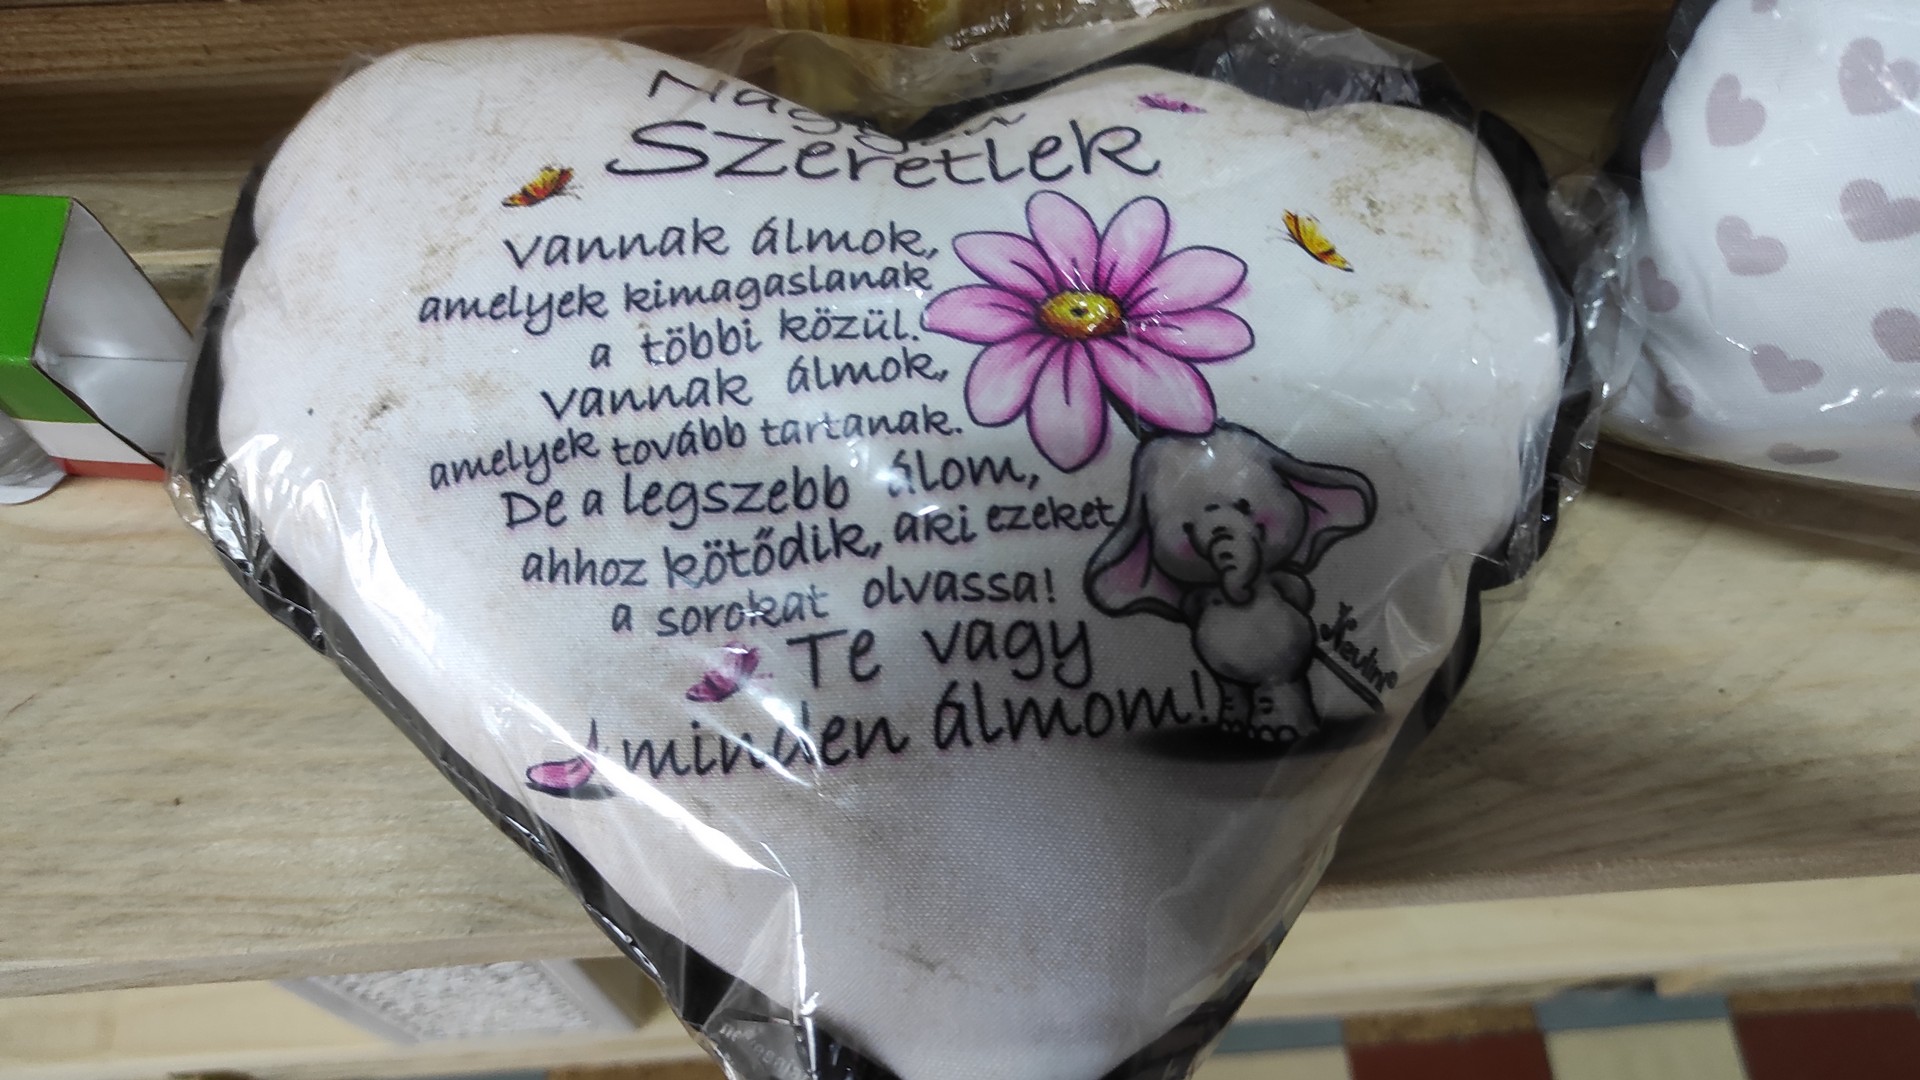 Nagyon
Szeretlek
vannak álmok,
amelyek kimagaslanak
a többi közül.
vannak álmok,
amelyek tovább tartanak.
De a legszebb álom,
ahhoz kötődik, aki ezeket
a sorokat olvassa!
Te vagy
minden álmom!